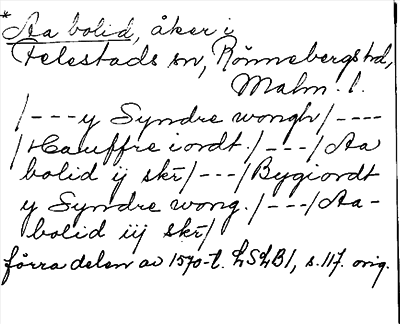 *Aa bolid, åker i
Felestads sn, Rönnebergs hd,
Malm. l.
/---y Syndre wongh/----
/Hauffre iordt./---/Aa
bolid ij skr/---/Bygiordt
y Syndre wong./---/Aa-
bolid iij skr/
förra delen av 1570-t. LSLB1, s.117. orig.